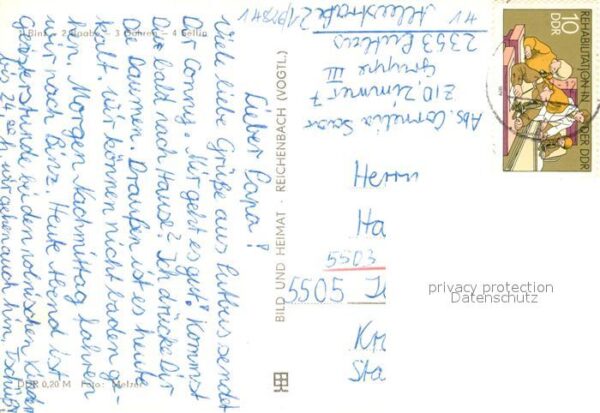 1 Binz - 2 Baabe - 3 Göhren - 4 Sellin
Lieber Papa!
Viele liebe Grüße aus Putbus sendet
Dir Conny. Mir geht es gut. Kommst
Du bald nach Hause? Ich drücke Dir
die Daumen. Draußen ist es heute
kalt, wir können nicht baden ge-
hen. Morgen Nachmittag fahren
wir nach Binz. Heute Abend ist
Geisterstunde bei den polnischen Kindern
bis 24 00 h, wir gehen auch hin. Tschüß!
DDR 0,20 M Foto: Melzer
BILD UND HEIMAT · REICHENBACH (VOGTL.)
Abs. Cornelia
Z 10 Zimmer 7
Gruppe III
2353 Putbus
Alleestraße
10
DDR
REHABILITATION IN DER DDR
Herrn
Ha
5503
5505
privacy protection
Datenschutz